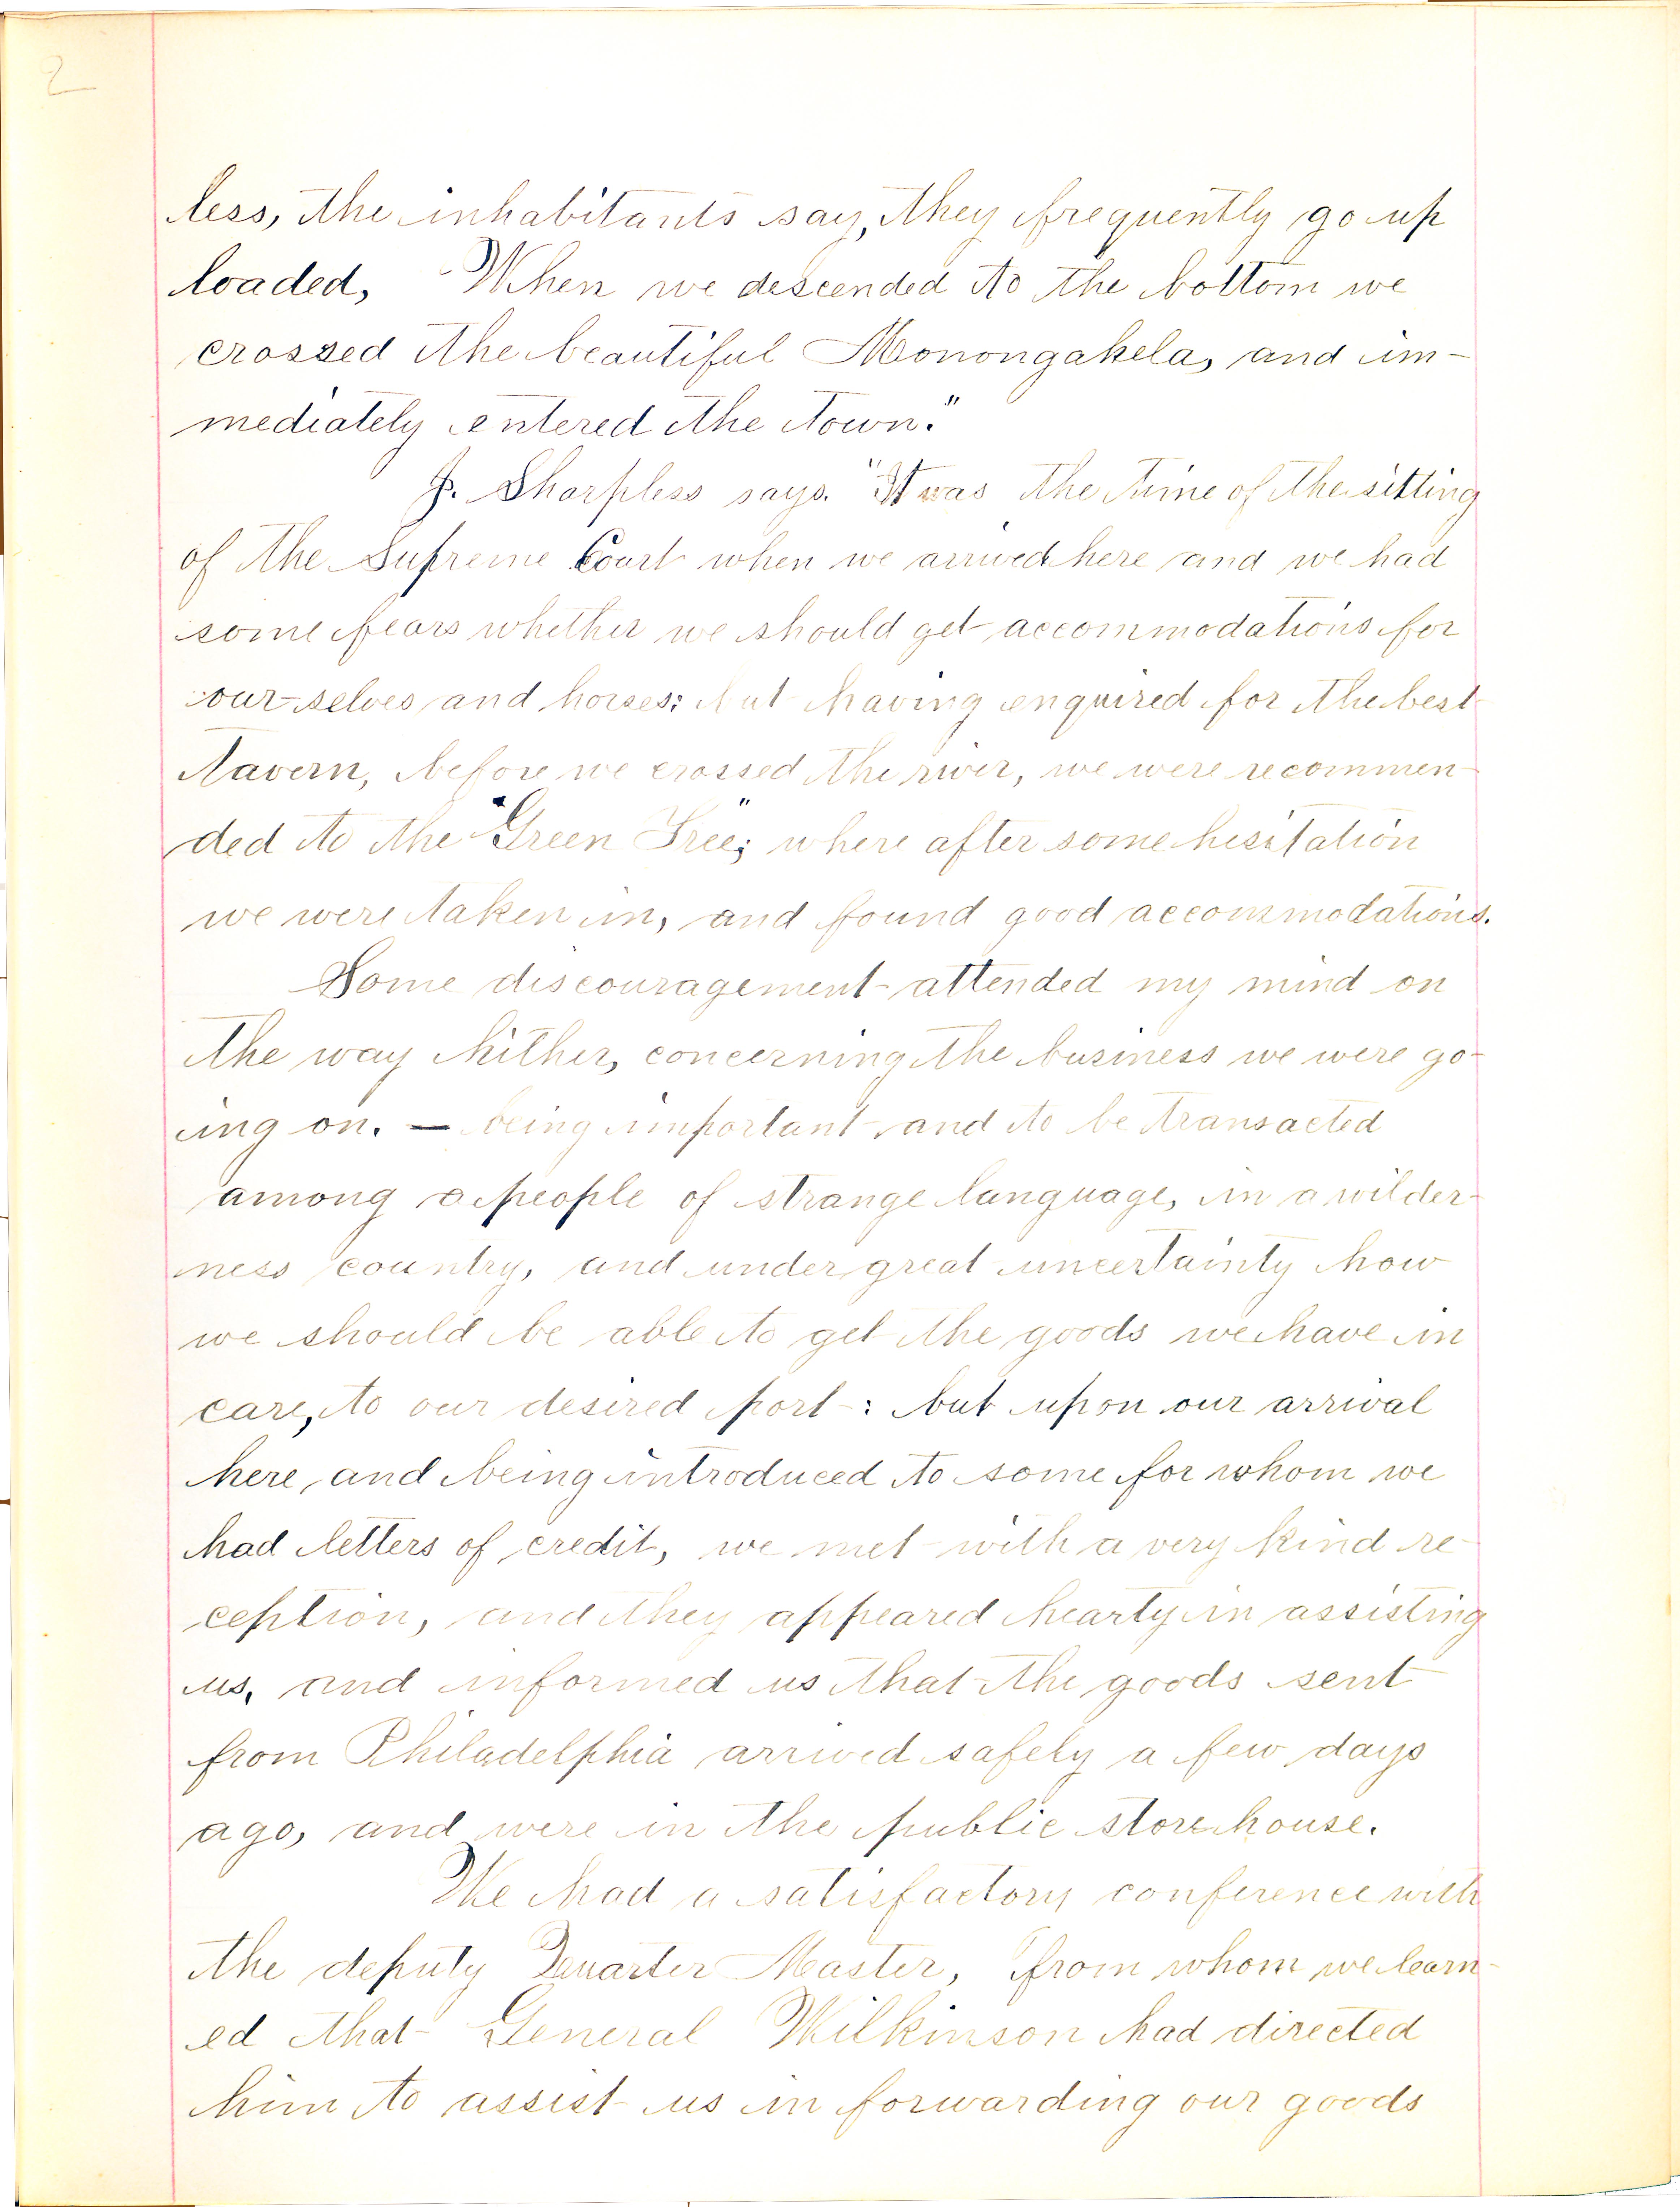 2
less, the inhabitants say, they frequently go up
loaded, When we descended to the bottom we
crossed the beautiful Monongakela, and im-
mediately entered the town."
J. Sharpless says. "It was the time of the sitting
of the Supreme Court when we arrived here and we had
some fears whether we should get accommodations for
our-selves and horses; but having enquired for the best
Tavern, before we crossed the river, we were recommen-
ded to the "Green Tree"; where after some hesitation
we were taken in, and found good accommodations.
Some discouragement attended my mind on
the way hither, concerning the business we were go-
ing on. — being important and to be transacted
among a people of strange language, in a wilder-
ness country, and under great uncertainty how
we should be able to get the goods we have in
care, to our desired port: but upon our arrival
here, and being introduced to some for whom we
had letters of credit, we met with a very kind re-
ception, and they appeared hearty in assisting
us, and informed us that the goods sent
from Philadelphia arrived safely a few days
ago, and were in the public storehouse.
We had a satisfactory conference with
the deputy Quarter Master, from whom we learn-
ed that General Wilkinson had directed
him to assist us in forwarding our goods